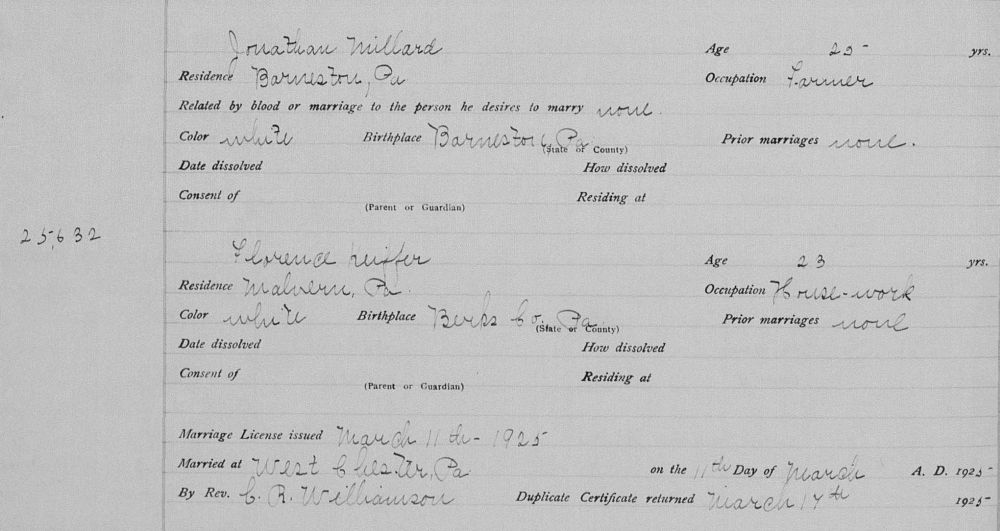 Jonathan Millard Age 25 yrs.
Residence Barneston, Pa Occupation Farmer
Related by blood or marriage to the person he desires to marry none.
Color white Birthplace Barneston, Pa. Prior marriages none.
(State or County)
Date dissolved How dissolved
Consent of Residing at
(Parent or Guardian)
25,632
Florence Keiffer Age 23 yrs.
Residence Malvern, Pa. Occupation House-work
Color white Birthplace Berks Co. Pa. Prior marriages none
(State or County)
Date dissolved How dissolved
Consent of Residing at
(Parent or Guardian)
Marriage License issued March 11th - 1925
Married at West Chester, Pa on the 11th Day of March A. D. 1925
By Rev. C. R. Williamson Duplicate Certificate returned March 17th 1925